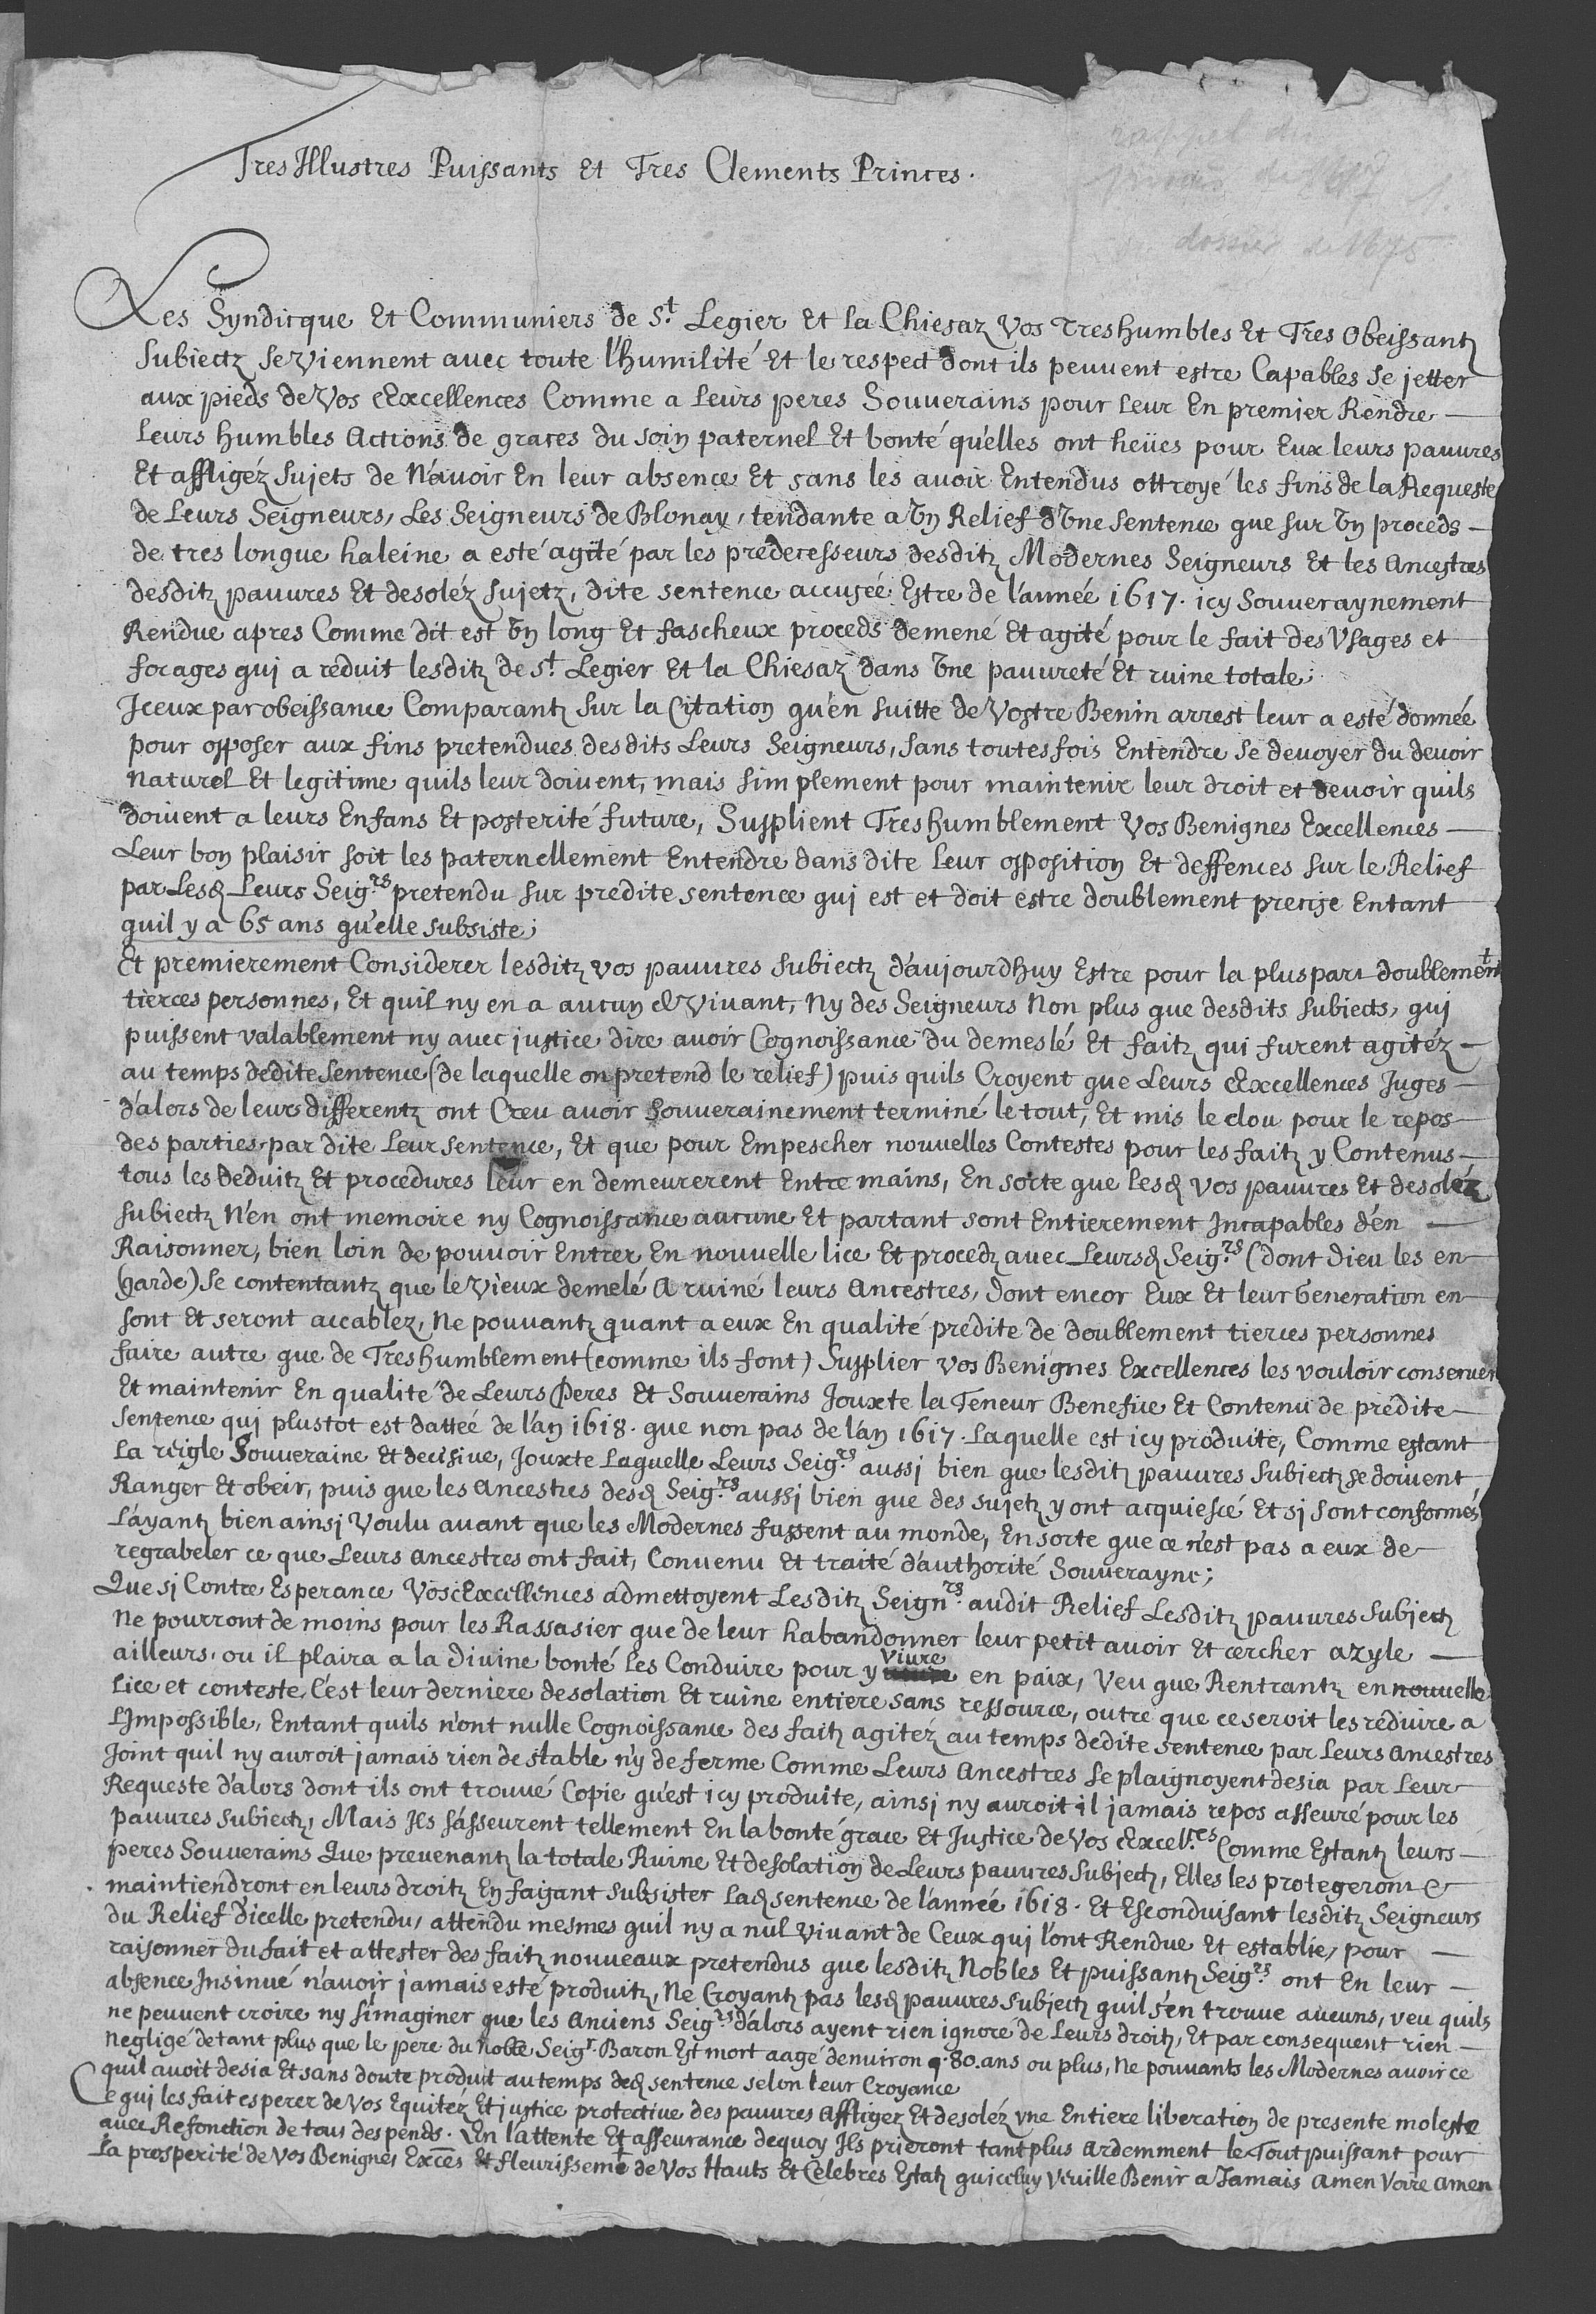 dossier de 1675
Tres Illustres Puissants et Tres Clements Princes.
Les Syndicque et Communiers de St. Legier et la Chiesaz vos tres humbles et Tres Obeissantz
subiectz se viennent avec toute l'humilité et le respect dont ils peuuent estre Capables se jetter
aux pieds de Vos Excellences Comme a leurs peres Souuerains pour leur En premier Rendre
leurs humbles Actions de graces du soin paternel et bonté qu'elles ont heües pour Eux leurs pauures
Et affligéz sujets de N'auoir En leur absence Et sans les auoir Entendus ottroyé les fins de la Requeste
de Leurs Seigneurs, Les Seigneurs de Blonay, tendante a Vn Relief d'Vne sentence que sur Vn proceds
de tres longue haleine a esté agité par les predecesseurs desditz Modernes Seigneurs et les Ancestres
desditz pauures Et desoléz sujetz, dite sentence accusée Estre de l'année 1617. icy Souueraynement
Rendue apres Comme dit est Vn long Et fascheux proceds demené Et agité pour le fait des Vsages et
focages qui a réduit lesditz de St. Legier Et la Chiesaz dans Vne pauureté Et ruine totale;
Iceux par obeissance Comparantz sur la Citation qu'en suitte de Vostre Benin arrest leur a esté donnée
pour opposer aux fins pretendues desdits Leurs Seigneurs, sans toutesfois Entendre se deuoyer du deuoir
naturel Et legitime quils leur doiuent, mais simplement pour maintenir leur droit et deuoir quils
doiuent a leurs Enfans Et posterité future, Supplient Tres humblement Vos Benignes Excellences
Leur bon plaisir soit les paternellement Entendre dans dite leur opposition Et deffences sur le Relief
par Lesd. Leurs Seig.rs pretendu sur predite sentence qui est et doit estre doublement precise Entant
quil y a 65 ans qu'elle subsiste;
Et premierement Considerer lesditz vos pauures subiectz d'aujourdhuy Estre pour la pluspart doublement
tierces personnes, Et quil ny en a aucun Vivant, Ny des Seigneurs Non plus que desdits subiects, qui
puissent valablement ny auec justice dire auoir Cognoissance du demeslé Et faitz qui furent agitéz
au temps dedite Sentence (de laquelle on pretend le relief) puis quils Croyent que Leurs Excellences Juges
d'alors de leurs differentz ont Creu auoir Souuerainement terminé le tout, Et mis le clou pour le repos
des parties par dite Leur sentence, Et que pour Empescher nouuelles Contestes pour les faitz y Contenus
tous les deduitz Et procedures leur en demeurerent Entre mains, En sorte que lesd. vos pauures Et desoléz
subiectz N'en ont memoire ny Cognoissance aucune Et partant sont Entierement Incapables d'en
Raisonner, bien loin de pouuoir Entrer En nouuelle lice Et procedz auec Leursd. Seig.rs (dont Dieu les en
garde) se contentantz que le vieux demelé A ruiné leurs Ancestres, dont encor Eux Et leur Generation en
sont Et seront accablez, Ne pouuantz quant a eux En qualité predite de doublement tierces personnes
faire autre que de Tres humblement (comme ils font) Supplier vos Benignes Excellences les vouloir conseruer
Et maintenir En qualité de Leurs Peres Et Souuerains Jouxte la Teneur Benefice Et Contenu de prédite
Sentence qui plustot est dattée de l'an 1618. que non pas de l'an 1617. Laquelle est icy produite, Comme estant
la reigle Souueraine Et decisiue, Jouxte Laquelle Leurs Seig.rs aussi bien que lesditz pauures Subiectz se doiuent
Ranger Et obeir, puis que les Ancestres desd. Seig.rs aussi bien que des sujetz y ont acquiescé Et si sont conformés
L'ayantz bien ainsi Voulu auant que les Modernes fussent au monde, En sorte que ce n'est pas a eux de
regrabeler ce que Leurs ancestres ont fait, Convenu Et traité d'authorité Souuerayne;
Que si Contre Esperance Vos Excellences admettoyent Lesditz Seign.rs audit Relief Lesditz pauures Subjectz
Ne pourront de moins pour les Rassasier que de leur habandonner leur petit auoir Et cercher azyle
ailleurs, ou il plaira a la Diuine bonté les Conduire pour y viure en paix, Veu que Rentrantz en nouuelle
Lice et conteste, C'est leur derniere desolation Et ruine entiere sans ressource, outre que ce seroit les réduire a
L'Impossible, Entant quils n'ont nulle Cognoissance des faitz agitez au temps dedite sentence par Leurs Ancestres
Joint quil ny auroit jamais rien de stable n'y de ferme Comme Leurs Ancestres se plaignoyent desia par Leur
Requeste d'alors dont ils ont trouué Copie qu'est icy produite, ainsi ny auroit il jamais repos asseuré pour les
pauures subiectz, Mais Ils s'asseurent tellement En la bonté grace Et Justice de Vos Excell.ces Comme Estantz leurs
peres Souuerains Que preuenantz la totale Ruine Et desolation de Leurs pauures Subjectz, Elles les protegeront &
maintiendront en leurs droitz En faisant subsister lad. sentence de l'année 1618. Et Esconduisant lesditz Seigneurs
du Relief d'icelle pretendu, attendu mesmes quil ny a nul viuant de Ceux qui l'ont Rendue Et establie, pour
raisonner du fait et attester des faitz nouueaux pretendus que lesditz Nobles Et puissantz Seig.rs ont En leur
absence Insinué n'auoir jamais esté produitz, Ne Croyantz pas lesd. pauures Subjectz quil s'en trouue aucuns, veu quils
ne peuuent croire ny s'imaginer que les Anciens Seig.rs d'alors ayent rien ignoré de Leurs droitz, Et par consequent rien
negligé detant plus que le pere du Noble Seig.r Baron Est mort aagé denuiron 80. ans ou plus, Ne pouuants les Modernes auoir ce
quil auoit desia Et sans doute produit au temps ded. sentence selon leur Croyance
Ce qui les fait esperer de Vos Equitéz Et justice protectiue des pauures Affligez Et desoléz vne Entiere liberation de presente moleste
auec Refonction de tous despends. En l'attente Et asseurance dequoy Ils prieront tant plus ardemment le Tout puissant pour
la prosperité de Vos Benignes Exces Et fleurissemt de Vos Hauts Et Celebres Estatz qu'iceluy Veuille Benir a Jamais Amen Voire Amen